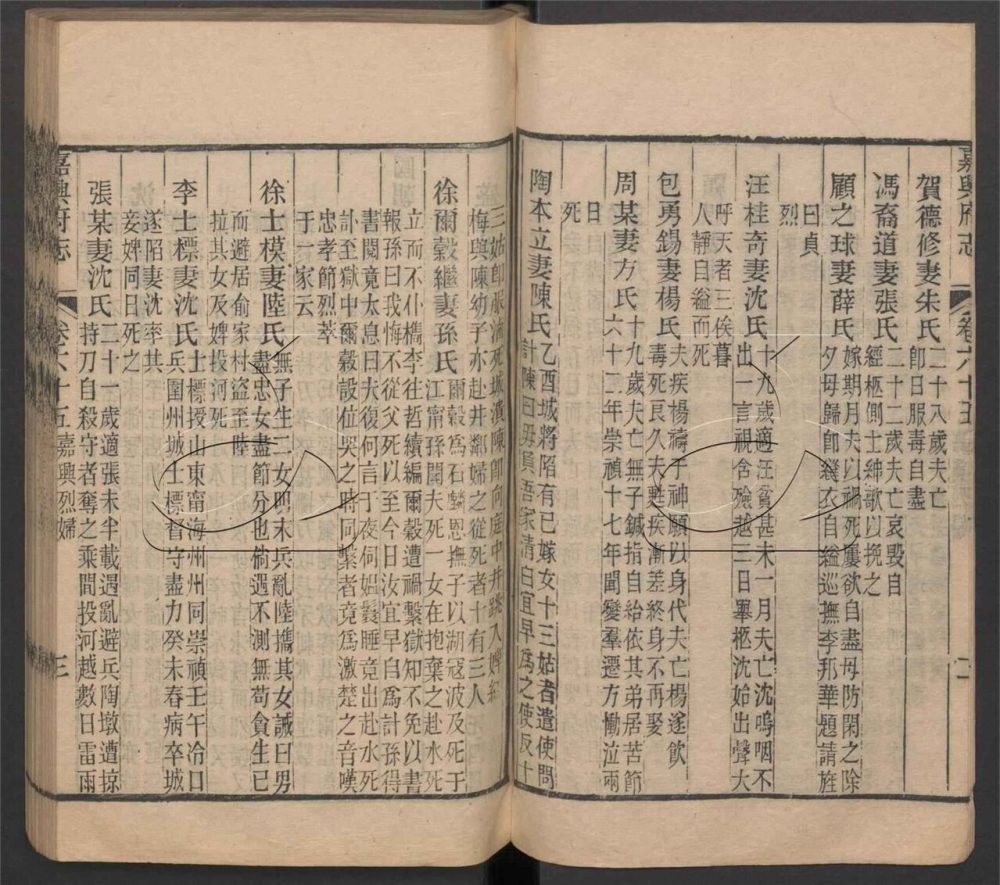 嘉興府志
卷六十五
二
賀德修妻朱氏 二十八歲夫亡
卽日服毒自盡
馮裔道妻張氏 二十二歲夫亡哀毀自
經柩側士紳歌以挽之
顧之球妻薛氏 嫁期月夫以禍死屢欲自盡母防閑之除
夕母歸卽縫衣自縊巡撫李邦華題請旌
曰貞
烈
汪桂奇妻沈氏 十九歲適汪貧甚未一月夫亡沈嗚咽不
出一言視含殮越三日舉柩沈始出聲大
呼天者三俟暮
人靜自縊而死
包勇錫妻楊氏 夫疾楊禱于神願以身代夫亡楊遂飲
毒死良久夫甦疾漸差終身不再娶
周某妻方氏 十九歲夫亡無子鍼指自給依其弟居苦節
六十二年崇禎十七年聞變羣遷方慟泣兩
日
死
陶本立妻陳氏 乙酉城將陷有已嫁女十三姑者遣使問
計陳曰毋負吾家清白宜早爲之使反十
三姑卽 死城潰陳卽向庭中井跳入婢紅
梅與陳幼子亦赴井鄰婦之從死者十有三人
徐爾穀繼妻孫氏 爾穀爲石麟恩撫子以湖寇波及死于
江甯孫聞夫死一女在抱棄之赴水死
立而不仆檇李往哲續編爾穀遭禍繫獄知不免以書
報孫曰我悔不從父死以至今日汝宜早自爲計孫得
書閱竟太息曰夫復何言于夜伺媼鬟睡竟出赴水死
訃至獄中爾穀設位哭之時同繫者竟爲激楚之音嘆
忠孝節烈萃
于一家云
徐士模妻陸氏 無子生二女明末兵亂陸攜其女誡曰男
盡忠女盡節分也倘遇不測無苟貪生已
而避居俞家村盜至陸
拉其女及婢投河死
李士標妻沈氏 士標授山東甯海州州同崇禎壬午冷口
兵圍州城士標督守盡力癸未春病卒城
遂陷妻沈率其
妾婢同日死之
張某妻沈氏 二十一歲適張未半載遇亂避兵陶墩遭掠
持刀自殺守者奪之乘間投河越數日雷雨
嘉興府志
卷六十五 嘉興烈婦
三